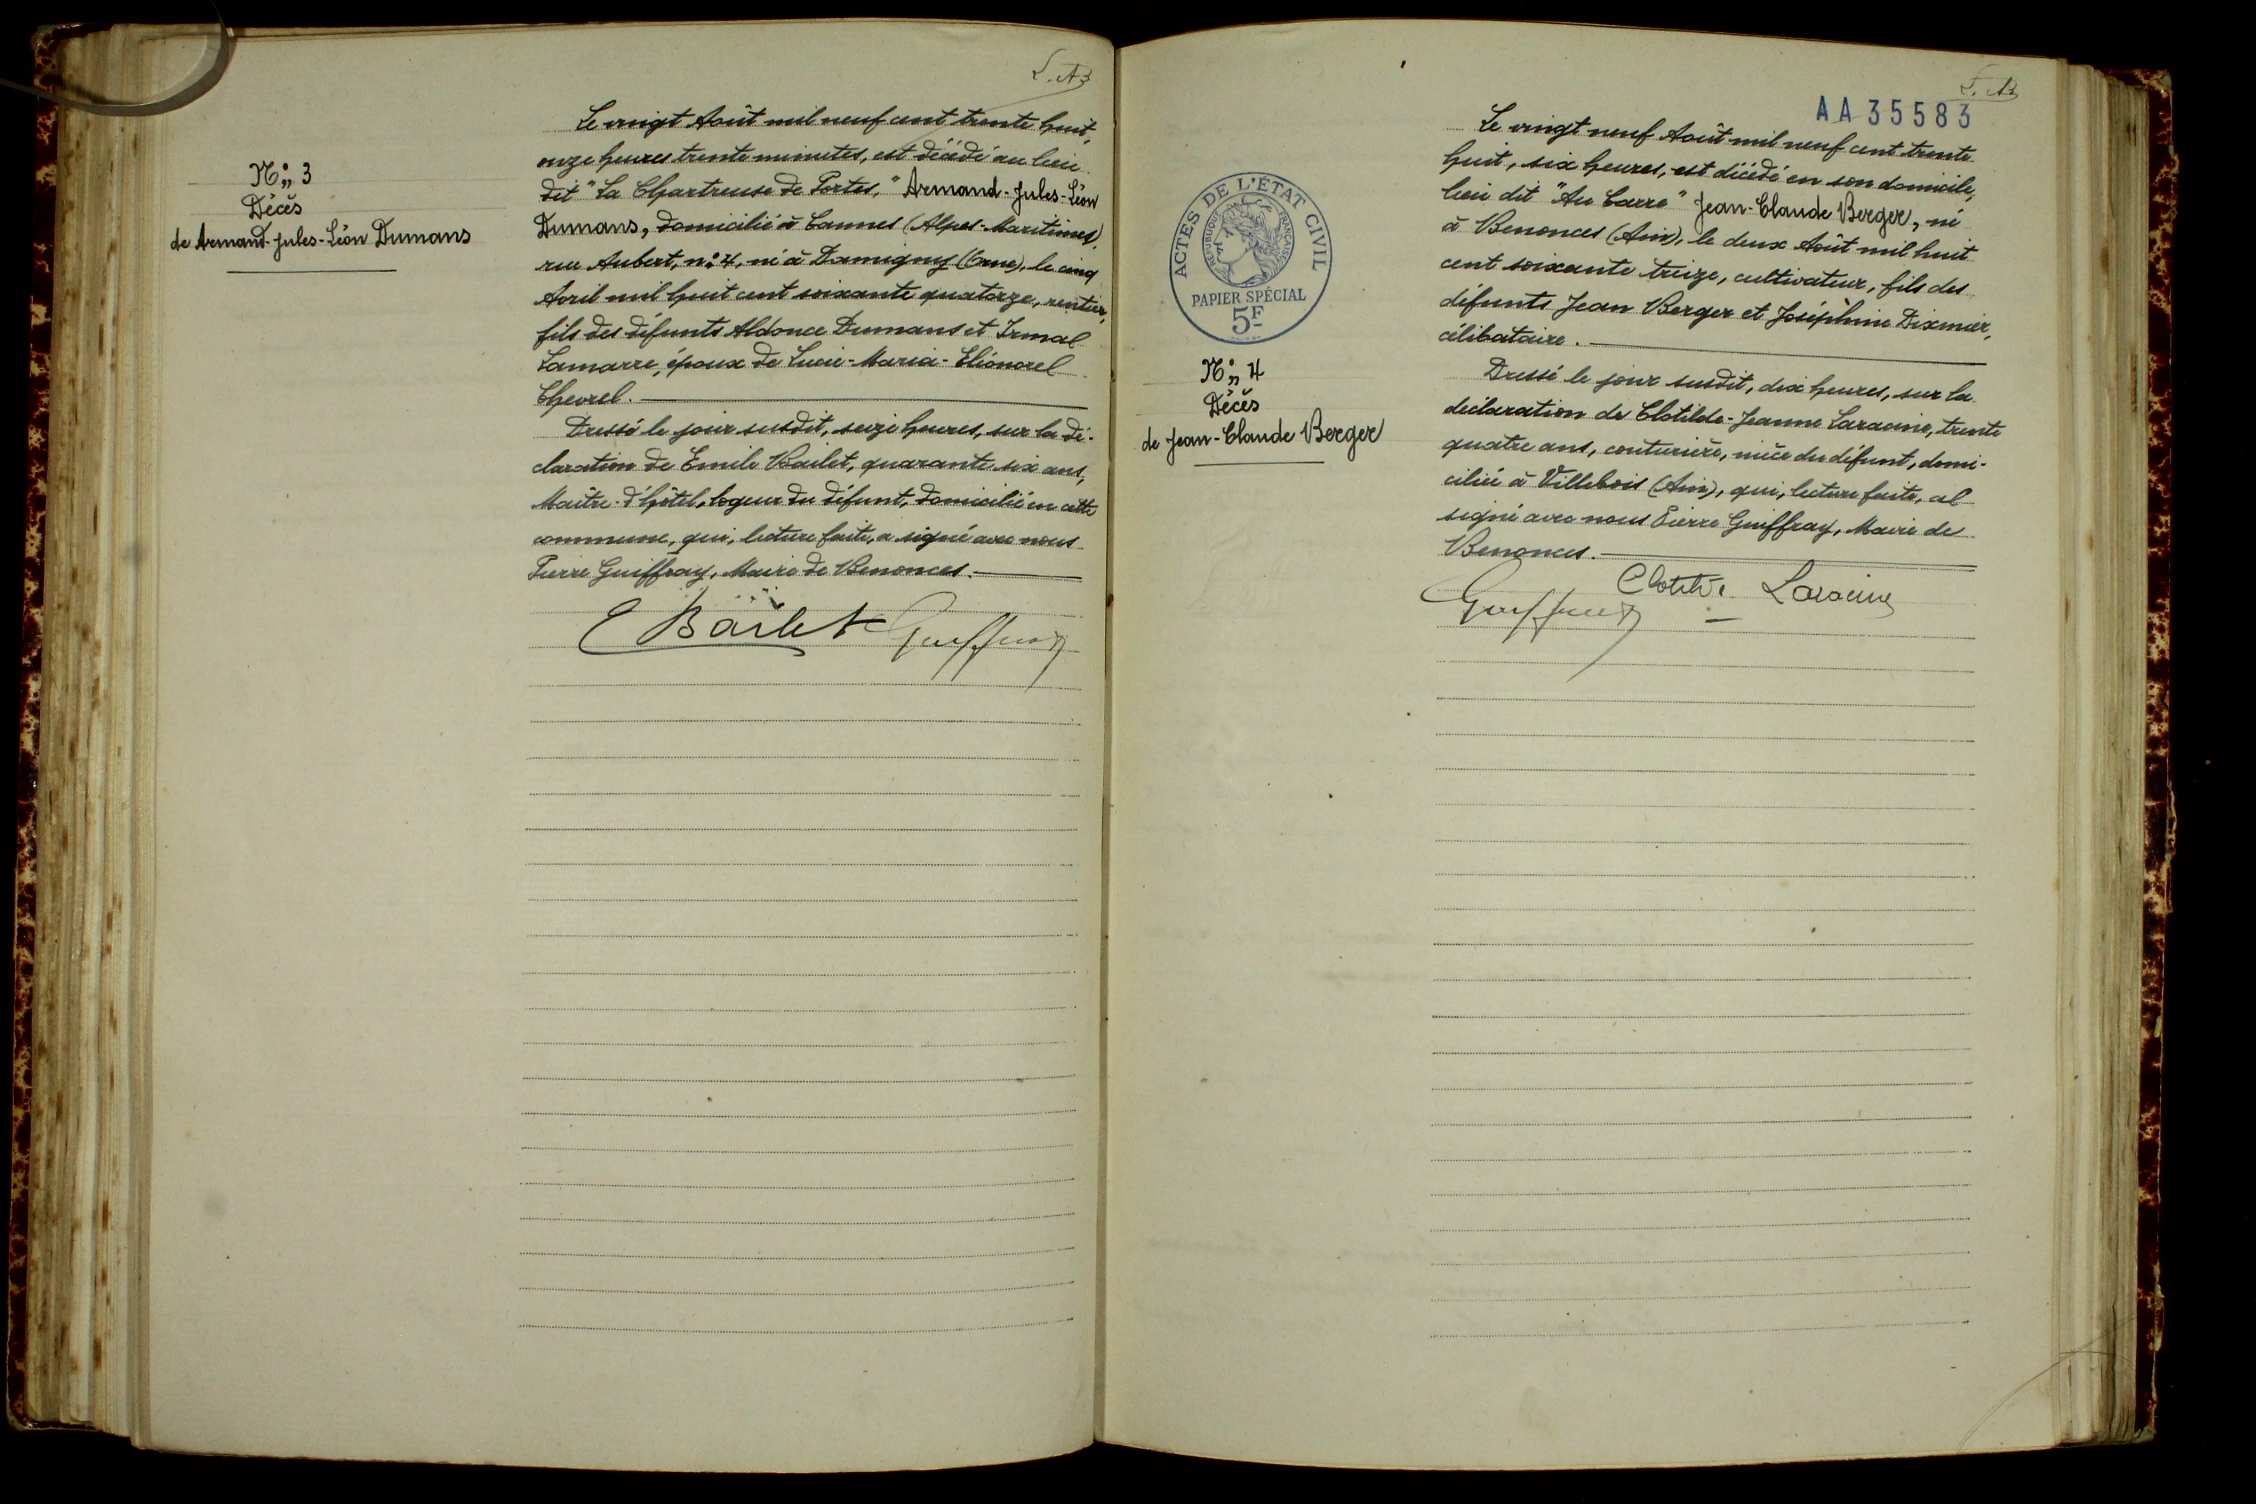 L. A3
N° 3
Décès
de Armand-Jules-Léon Dumans
Le vingt Août mil neuf cent trente huit,
onze heures trente minutes, est décédé au lieu
dit "La Chartreuse de Portes," Armand-Jules-Léon
Dumans, domicilié à Cannes (Alpes-Maritimes),
rue Aubert, n° 4, né à Damigny (Orne), le cinq
Avril mil huit cent soixante quatorze, rentier,
fils des défunts Aldonce Dumans et Irma
Lamarre, époux de Lucie-Maria-Eléonore
Chevrel.
Dressé le jour susdit, seize heures, sur la dé-
claration de Emile Bailet, quarante six ans,
Maître-d'hôtel, logeur du défunt, domicilié en cette
commune, qui, lecture faite, a signé avec nous
Pierre Guiffray, Maire de Benonces.
E Bailet Guiffray
AA 35583
ACTES DE L'ÉTAT CIVIL
RÉPUBLIQUE FRANÇAISE
PAPIER SPÉCIAL
5F
N° 4
Décès
de Jean-Claude Berger
Le vingt neuf Août mil neuf cent trente
huit, six heures, est décédé en son domicile,
lieu dit "Au Carre" Jean-Claude Berger, né
à Benonces (Ain), le deux Août mil huit
cent soixante treize, cultivateur, fils des
défunts Jean Berger et Joséphine Dixmier,
célibataire.
Dressé le jour susdit, dix heures, sur la
déclaration de Clotilde-Jeanne Laracine, trente
quatre ans, couturière, nièce du défunt, domi-
ciliée à Villebois (Ain), qui, lecture faite, a
signé avec nous Pierre Guiffray, Maire de
Benonces.
Guiffray Clotilde Laracine